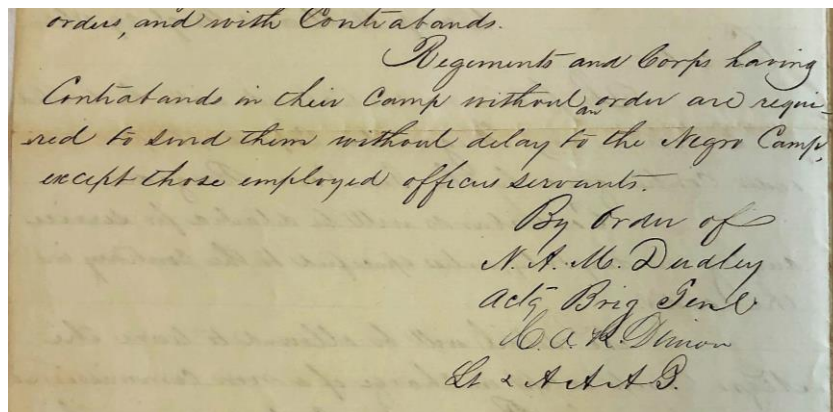 orders, and with Contrabands.
Regiments and Corps having
Contrabands in their Camp without an order are requi-
red to send them without delay to the Negro Camp,
except those employed officers servants.
By Order of
N. A. M. Dudley
Actg Brig Genl
C. A. R. Dimon
Lt & A A A G.